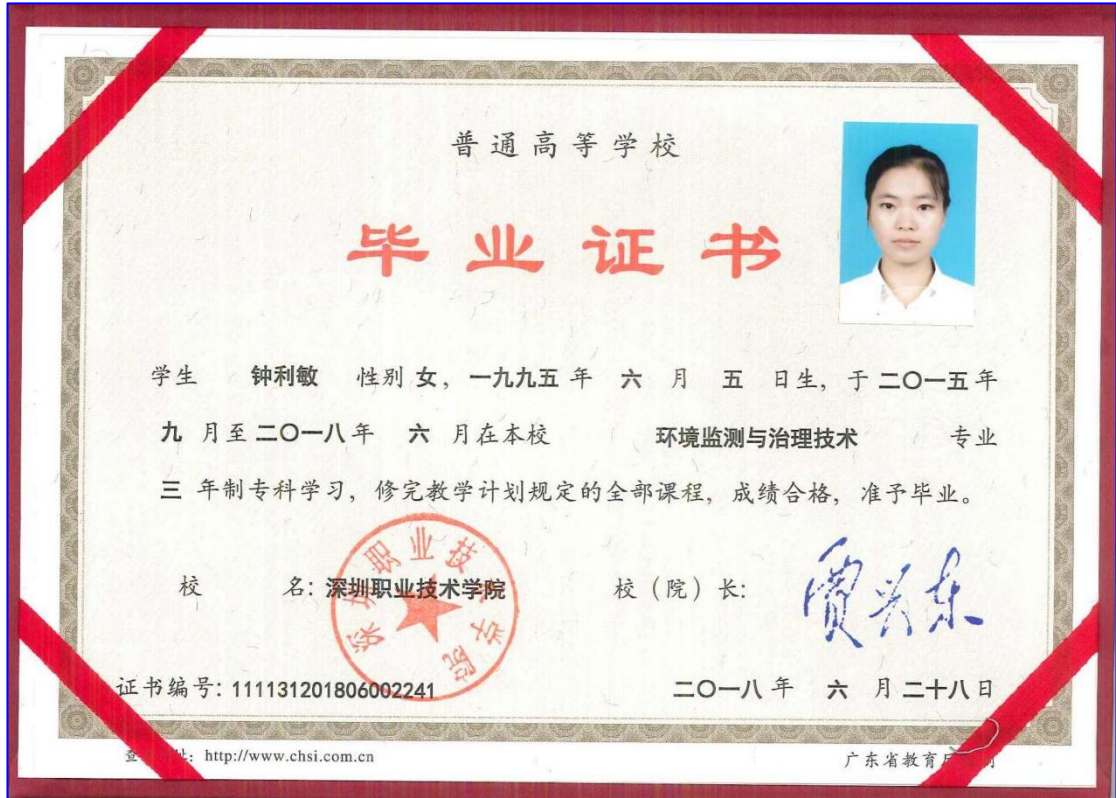 普通高等学校
毕业证书
学生 钟利敏 性别 女，一九九五 年 六 月 五 日生，于 二〇一五 年
九 月至 二〇一八 年 六 月在本校 环境监测与治理技术 专业
三 年制专科学习，修完教学计划规定的全部课程，成绩合格，准予毕业。
深圳职业技术学院
校 名：深圳职业技术学院 校（院）长：贾兴东
证书编号：111131201806002241 二〇一八 年 六 月 二十八 日
http://www.chsi.com.cn 广东省教育